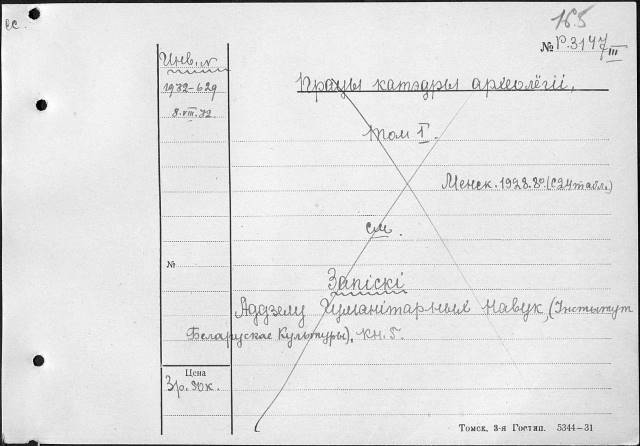 ес.
16.5
№ Р.3147 III
Инв. №
1932-629
8.VIII.32
Працы катэдры археолёгіі,
том I.
Менск. 1928. 8º. (с 24 табл.)
см.
№
Запіскі
Аддзелу Гуманітарных Навук, (Інстытут
Беларускае Культуры), кн. 5.
Цена
3 р. 90 к.
Томск, 3-я Гостип. 5344—31